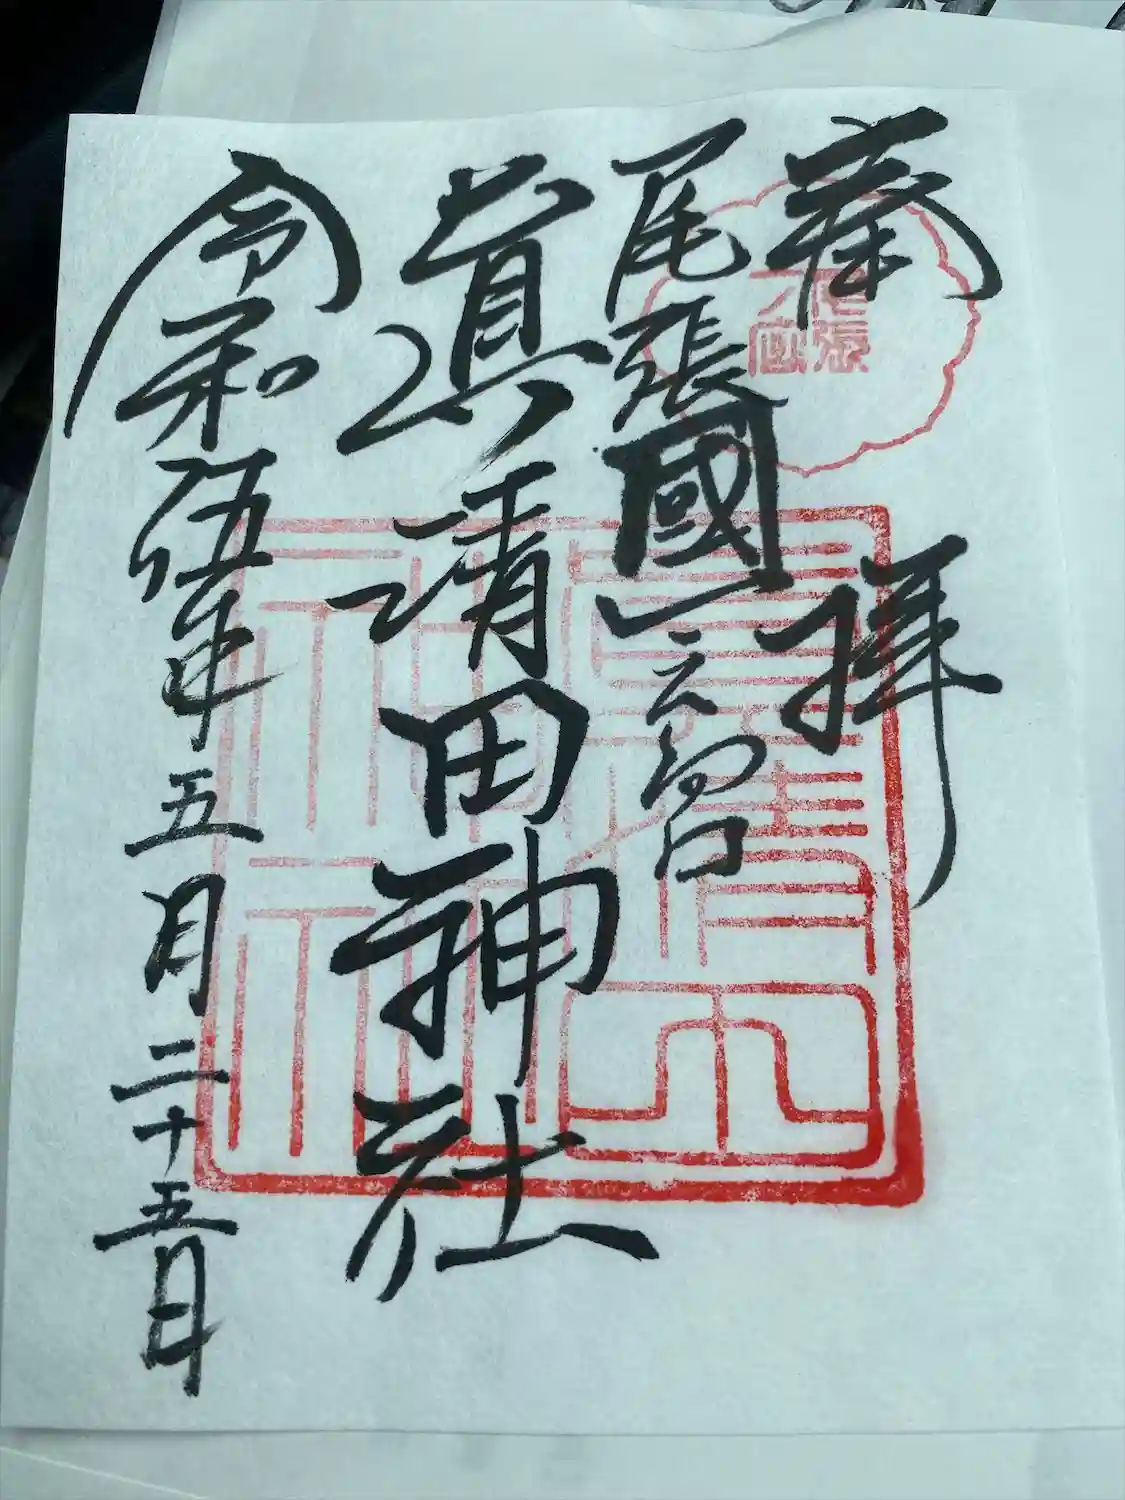 奉拝
尾張國一之宮
眞清田神社
令和伍年五月二十五日
眞清田
神社